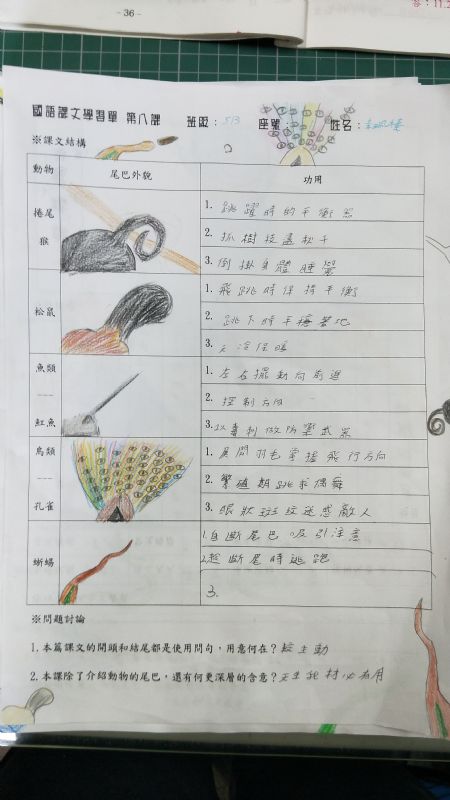 - 36 -
答：11.2
國語課文學習單 第八課 班級：513 座號： 姓名：
※課文結構
動物 尾巴外貌 功用
捲尾猴
1. 跳躍時的平衡器
2. 抓樹枝盪鞦千
3. 倒掛身體睡覺
松鼠
1. 飛跳時保持平衡
2. 跳下時平穩著地
3. 天冷保暖
魚類
魟魚
1. 左右擺動向前進
2. 控制方向
3. 以毒刺做防禦武器
鳥類
孔雀
1. 展開羽毛掌握飛行方向
2. 繁殖期跳求偶舞
3. 眼狀斑紋迷惑敵人
蜥蜴
1. 自斷尾巴吸引注意
2. 趁斷尾時逃跑
3.
※問題討論
1. 本篇課文的開頭和結尾都是使用問句，用意何在？較生動
2. 本課除了介紹動物的尾巴，還有何更深層的含意？天生我材必有用